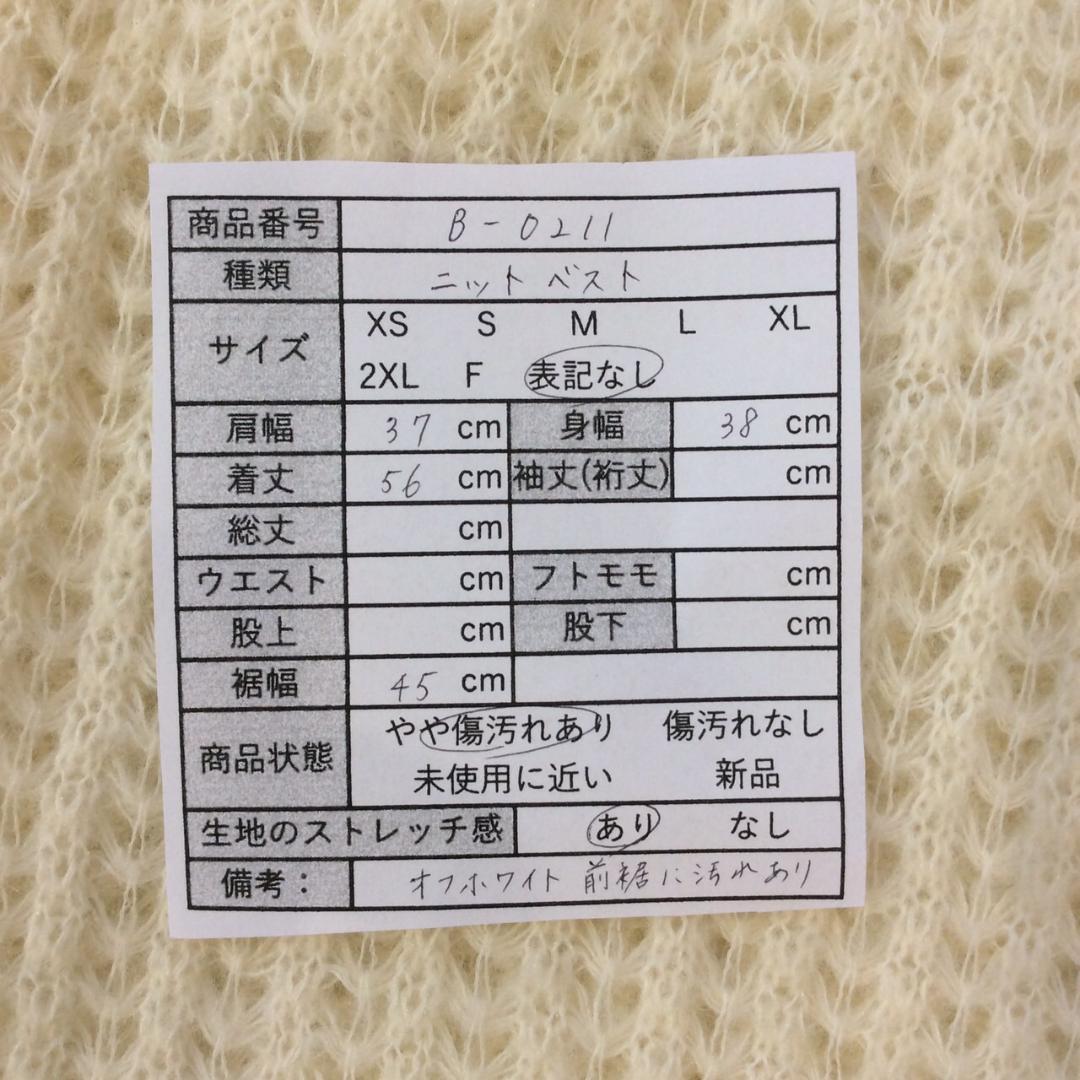 商品番号 B-0211
種類 ニットベスト
サイズ XS S M L XL
2XL F 表記なし
肩幅 37 cm 身幅 38 cm
着丈 56 cm 袖丈(裄丈) cm
総丈 cm
ウエスト cm フトモモ cm
股上 cm 股下 cm
裾幅 45 cm
商品状態 やや傷汚れあり 傷汚れなし
未使用に近い 新品
生地のストレッチ感 あり なし
備考： オフホワイト 前裾に汚れあり